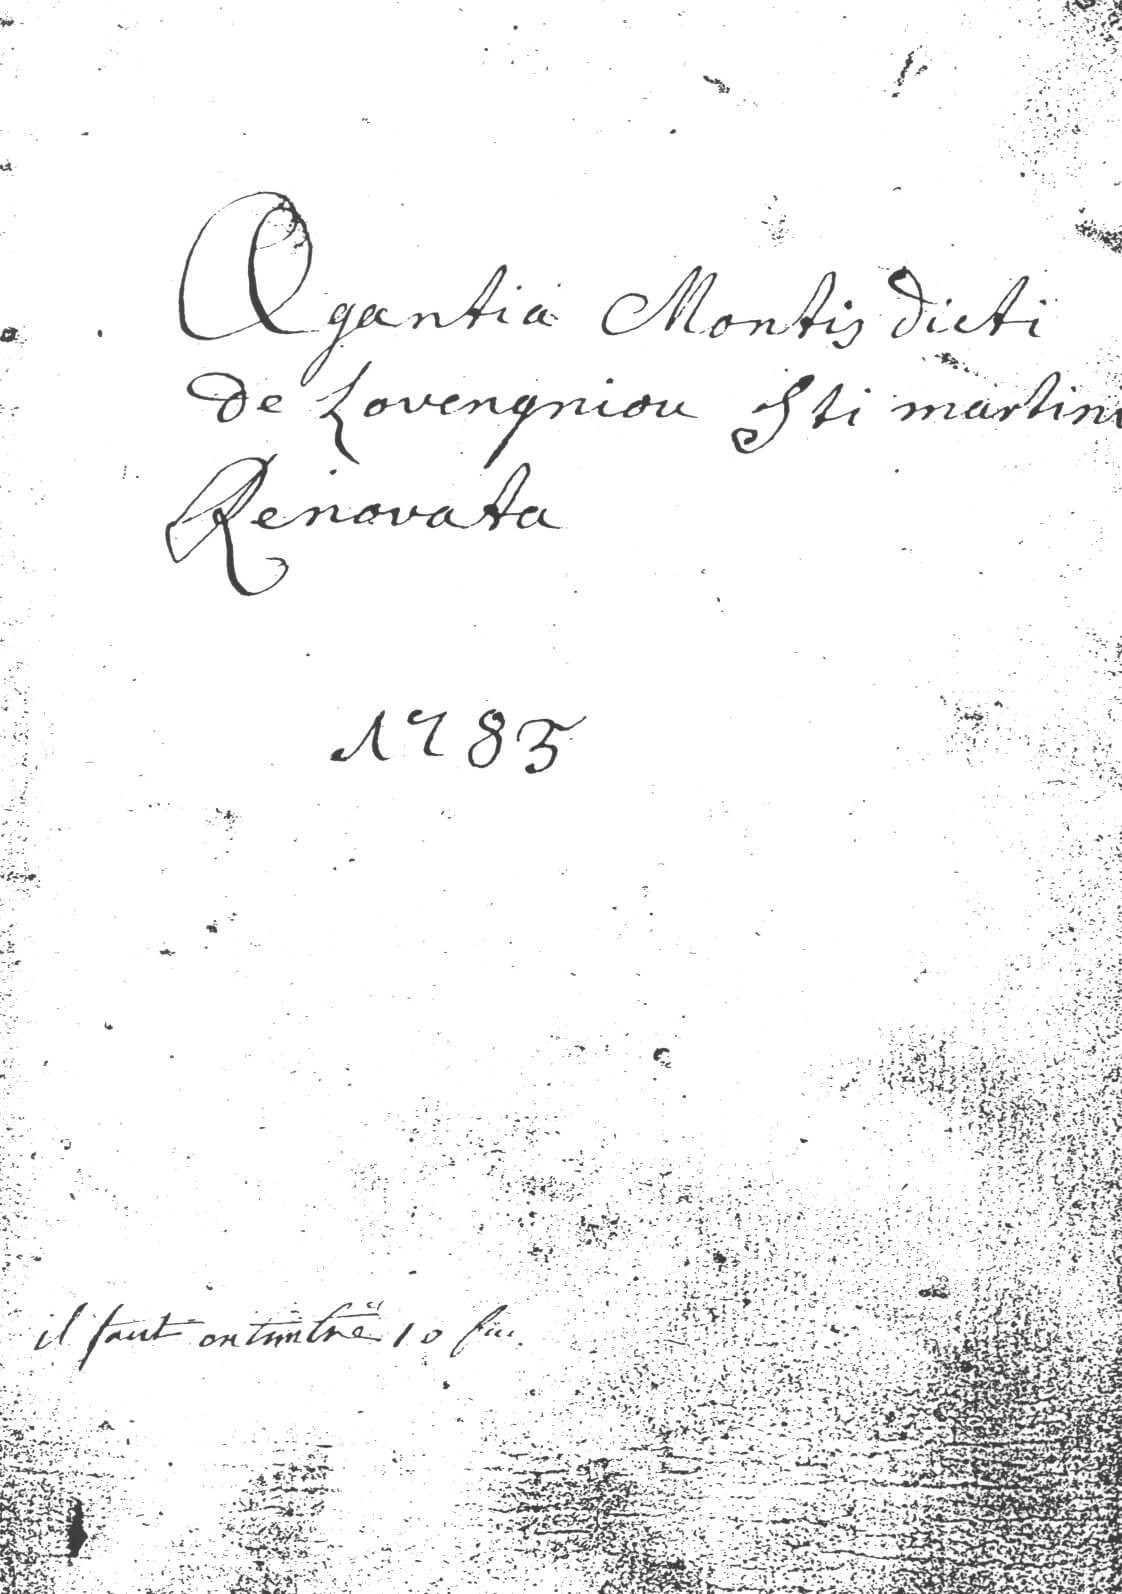 Agantia Montis dicti
de Lovengniou Sti martini
Renovata
1785
il faut 10